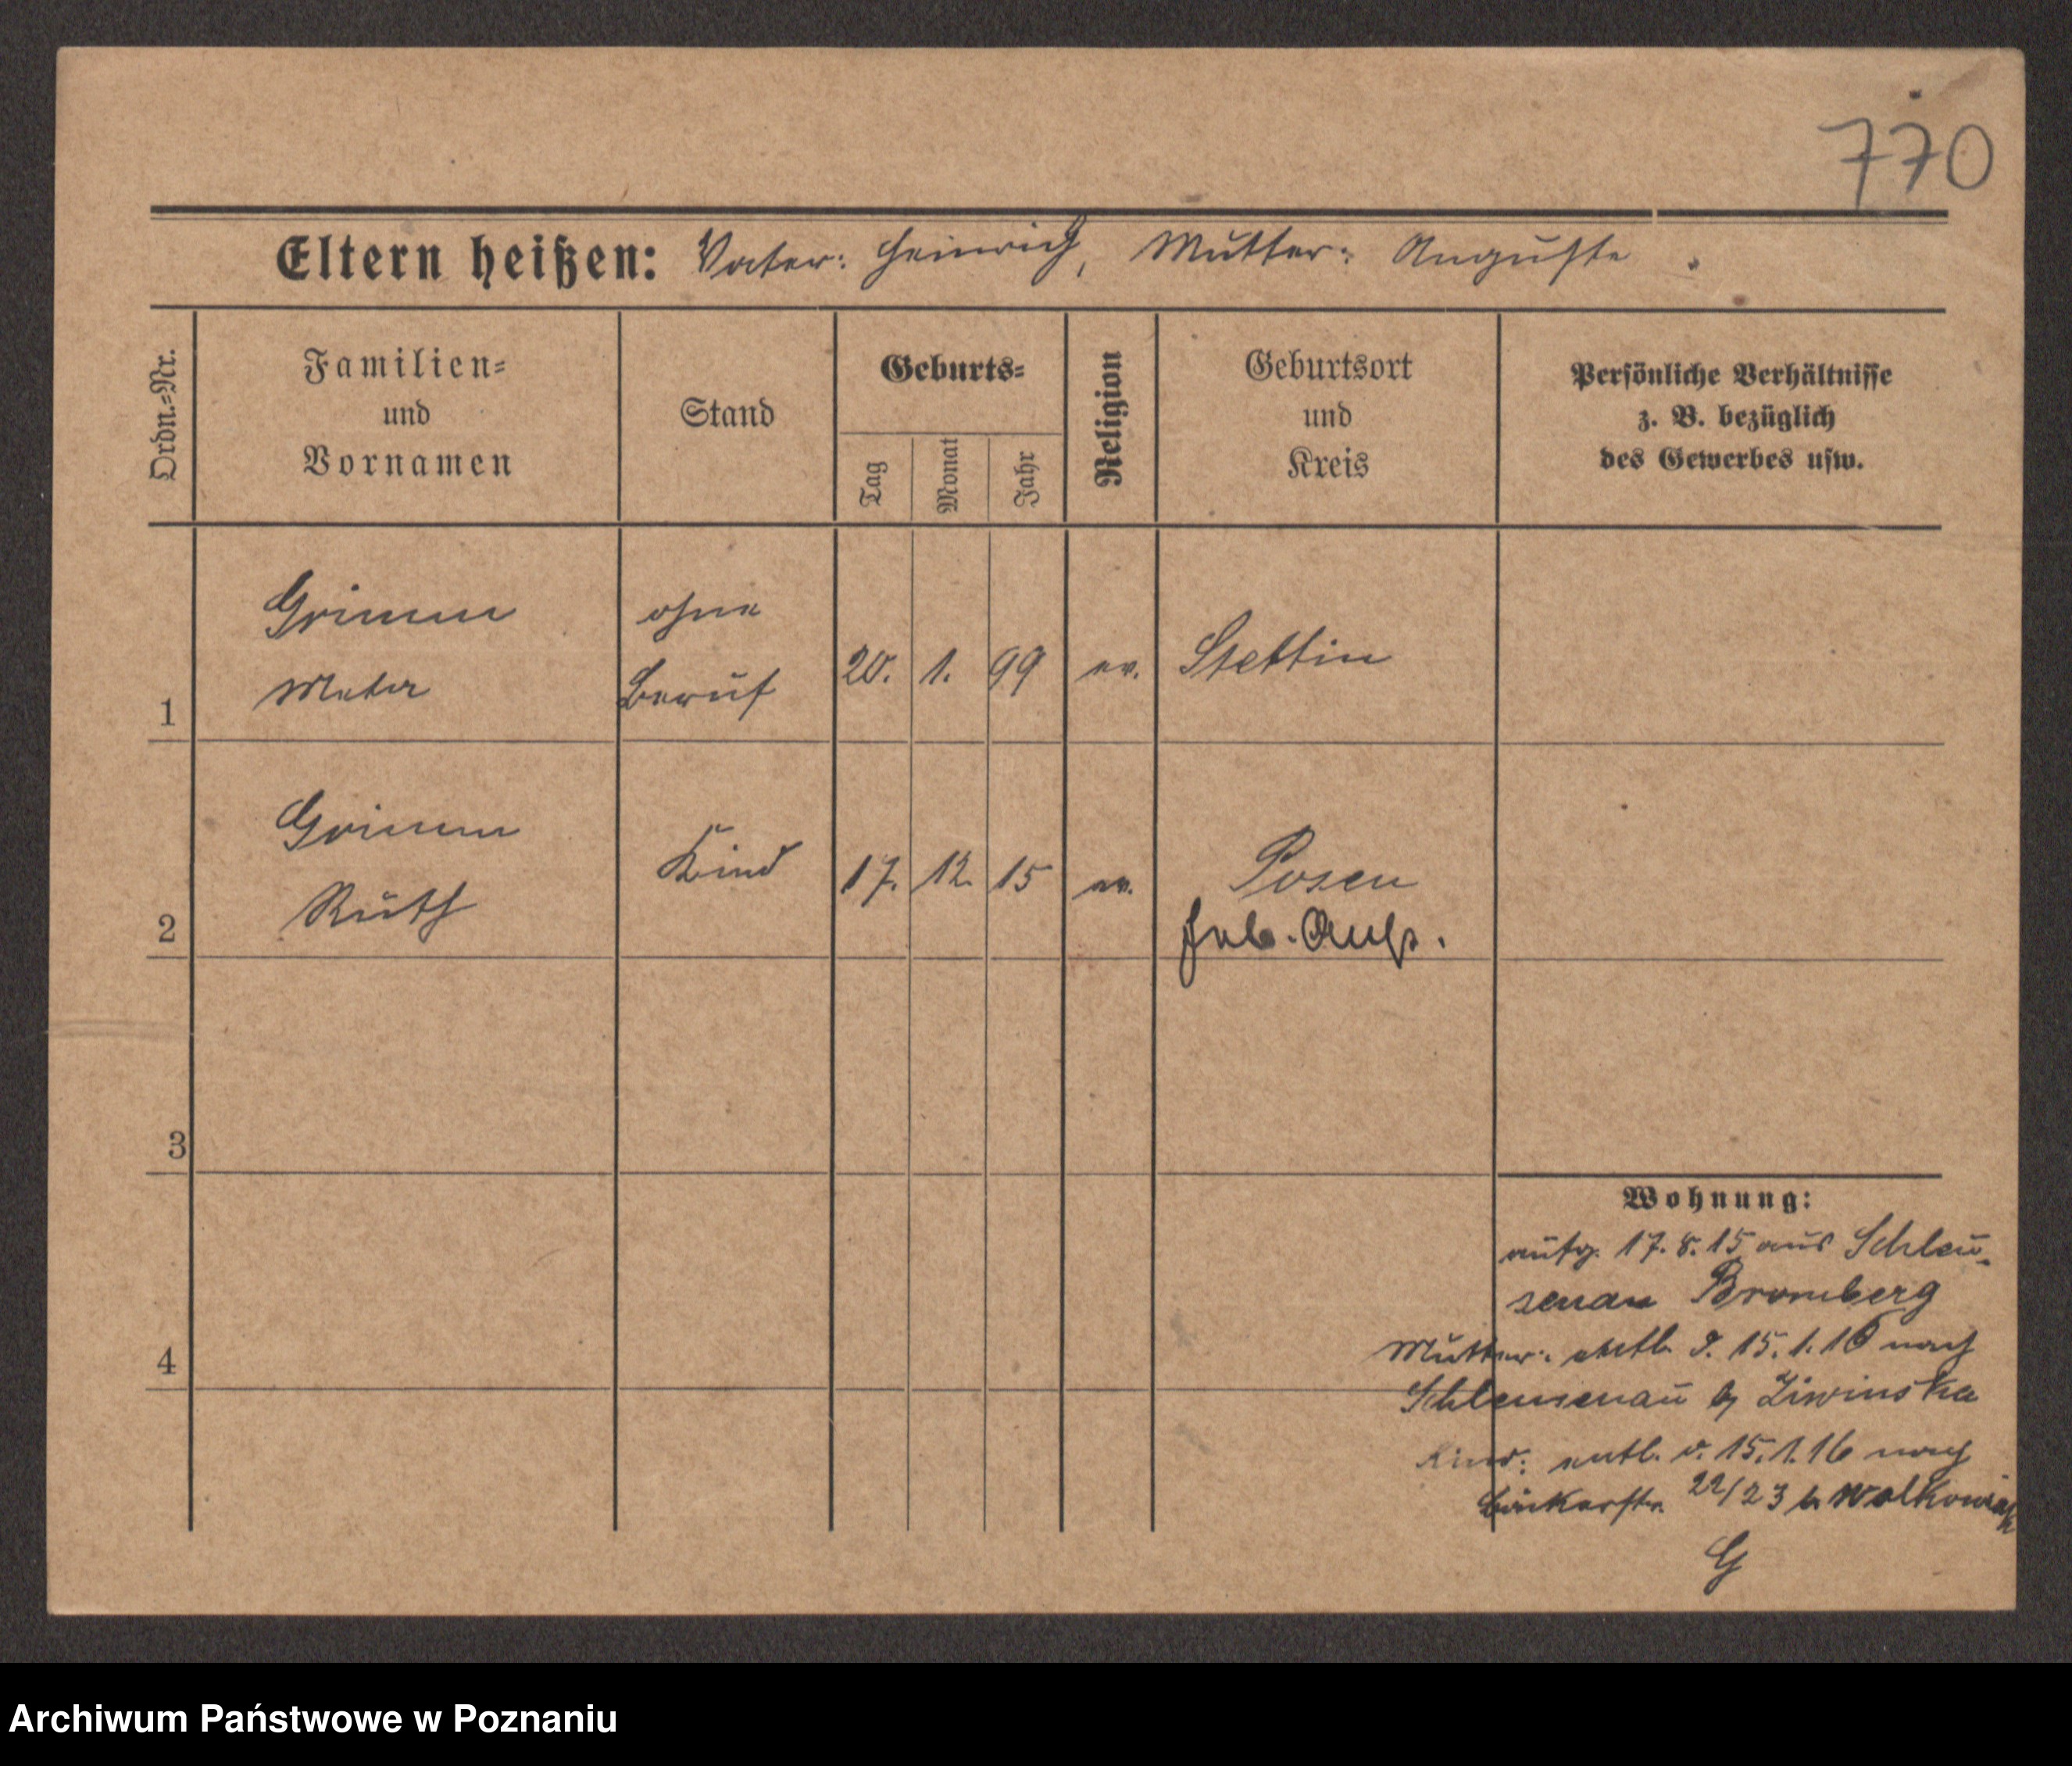 770
Eltern heißen: Vater: Heinrich, Mutter: Auguste.
Ordn.-Nr.
Familien-
und
Vornamen
Stand
Geburts-
Tag
Monat
Jahr
Religion
Geburtsort
und
Kreis
Persönliche Verhältnisse
z. B. bezüglich
des Gewerbes usw.
1
Grimm
Meta
ohne
Beruf
20. 1. 99
ev.
Stettin
2
Grimm
Ruth
Kind
17. 12. 15
ev.
Posen
Heb. Anst.
3
4
Wohnung:
aufg. 17. 8. 15 aus Schleu-
senau Bromberg
Mutter: entl. d. 15. 1. 16 nach
Schleusenau b Ziwinska
Kind: entl. d. 15. 1. 16 nach
Bäckerstr. 22/23 b Walkowiak
G
Archiwum Państwowe w Poznaniu